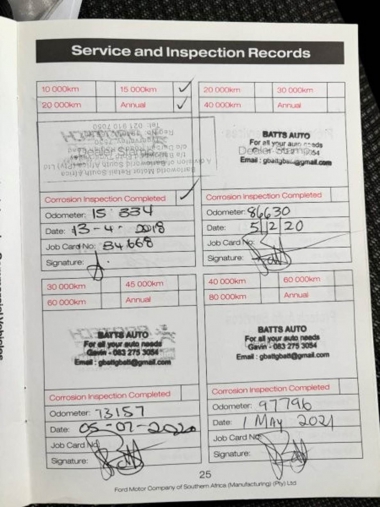 Service and Inspection Records
10 000km 15 000km ✓
20 000km Annual ✓
Tel: 021 010 7050
Dealer Stamp
Corrosion Inspection Completed
Odometer: 15 334
Date: 13-4-2018
Job Card No: B4668
Signature:
20 000km 30 000km
40 000km Annual
BATTS AUTO
For all your auto needs
Email : gbattgbatt@gmail.com
Corrosion Inspection Completed
Odometer: 86630
Date: 5/12/20
Job Card No:
Signature:
30 000km 45 000km
60 000km Annual
BATTS AUTO
For all your auto needs
Gavin - 083 275 3054
Email : gbattgbatt@gmail.com
Corrosion Inspection Completed
Odometer: 73157
Date: 05-07-2020
Job Card No:
Signature:
40 000km 60 000km
80 000km Annual
BATTS AUTO
For all your auto needs
Gavin - 083 275 3054
Email : gbattgbatt@gmail.com
Corrosion Inspection Completed
Odometer: 97796
Date: 1 May 2021
Job Card No:
Signature:
25
Ford Motor Company of Southern Africa (Manufacturing) (Pty) Ltd